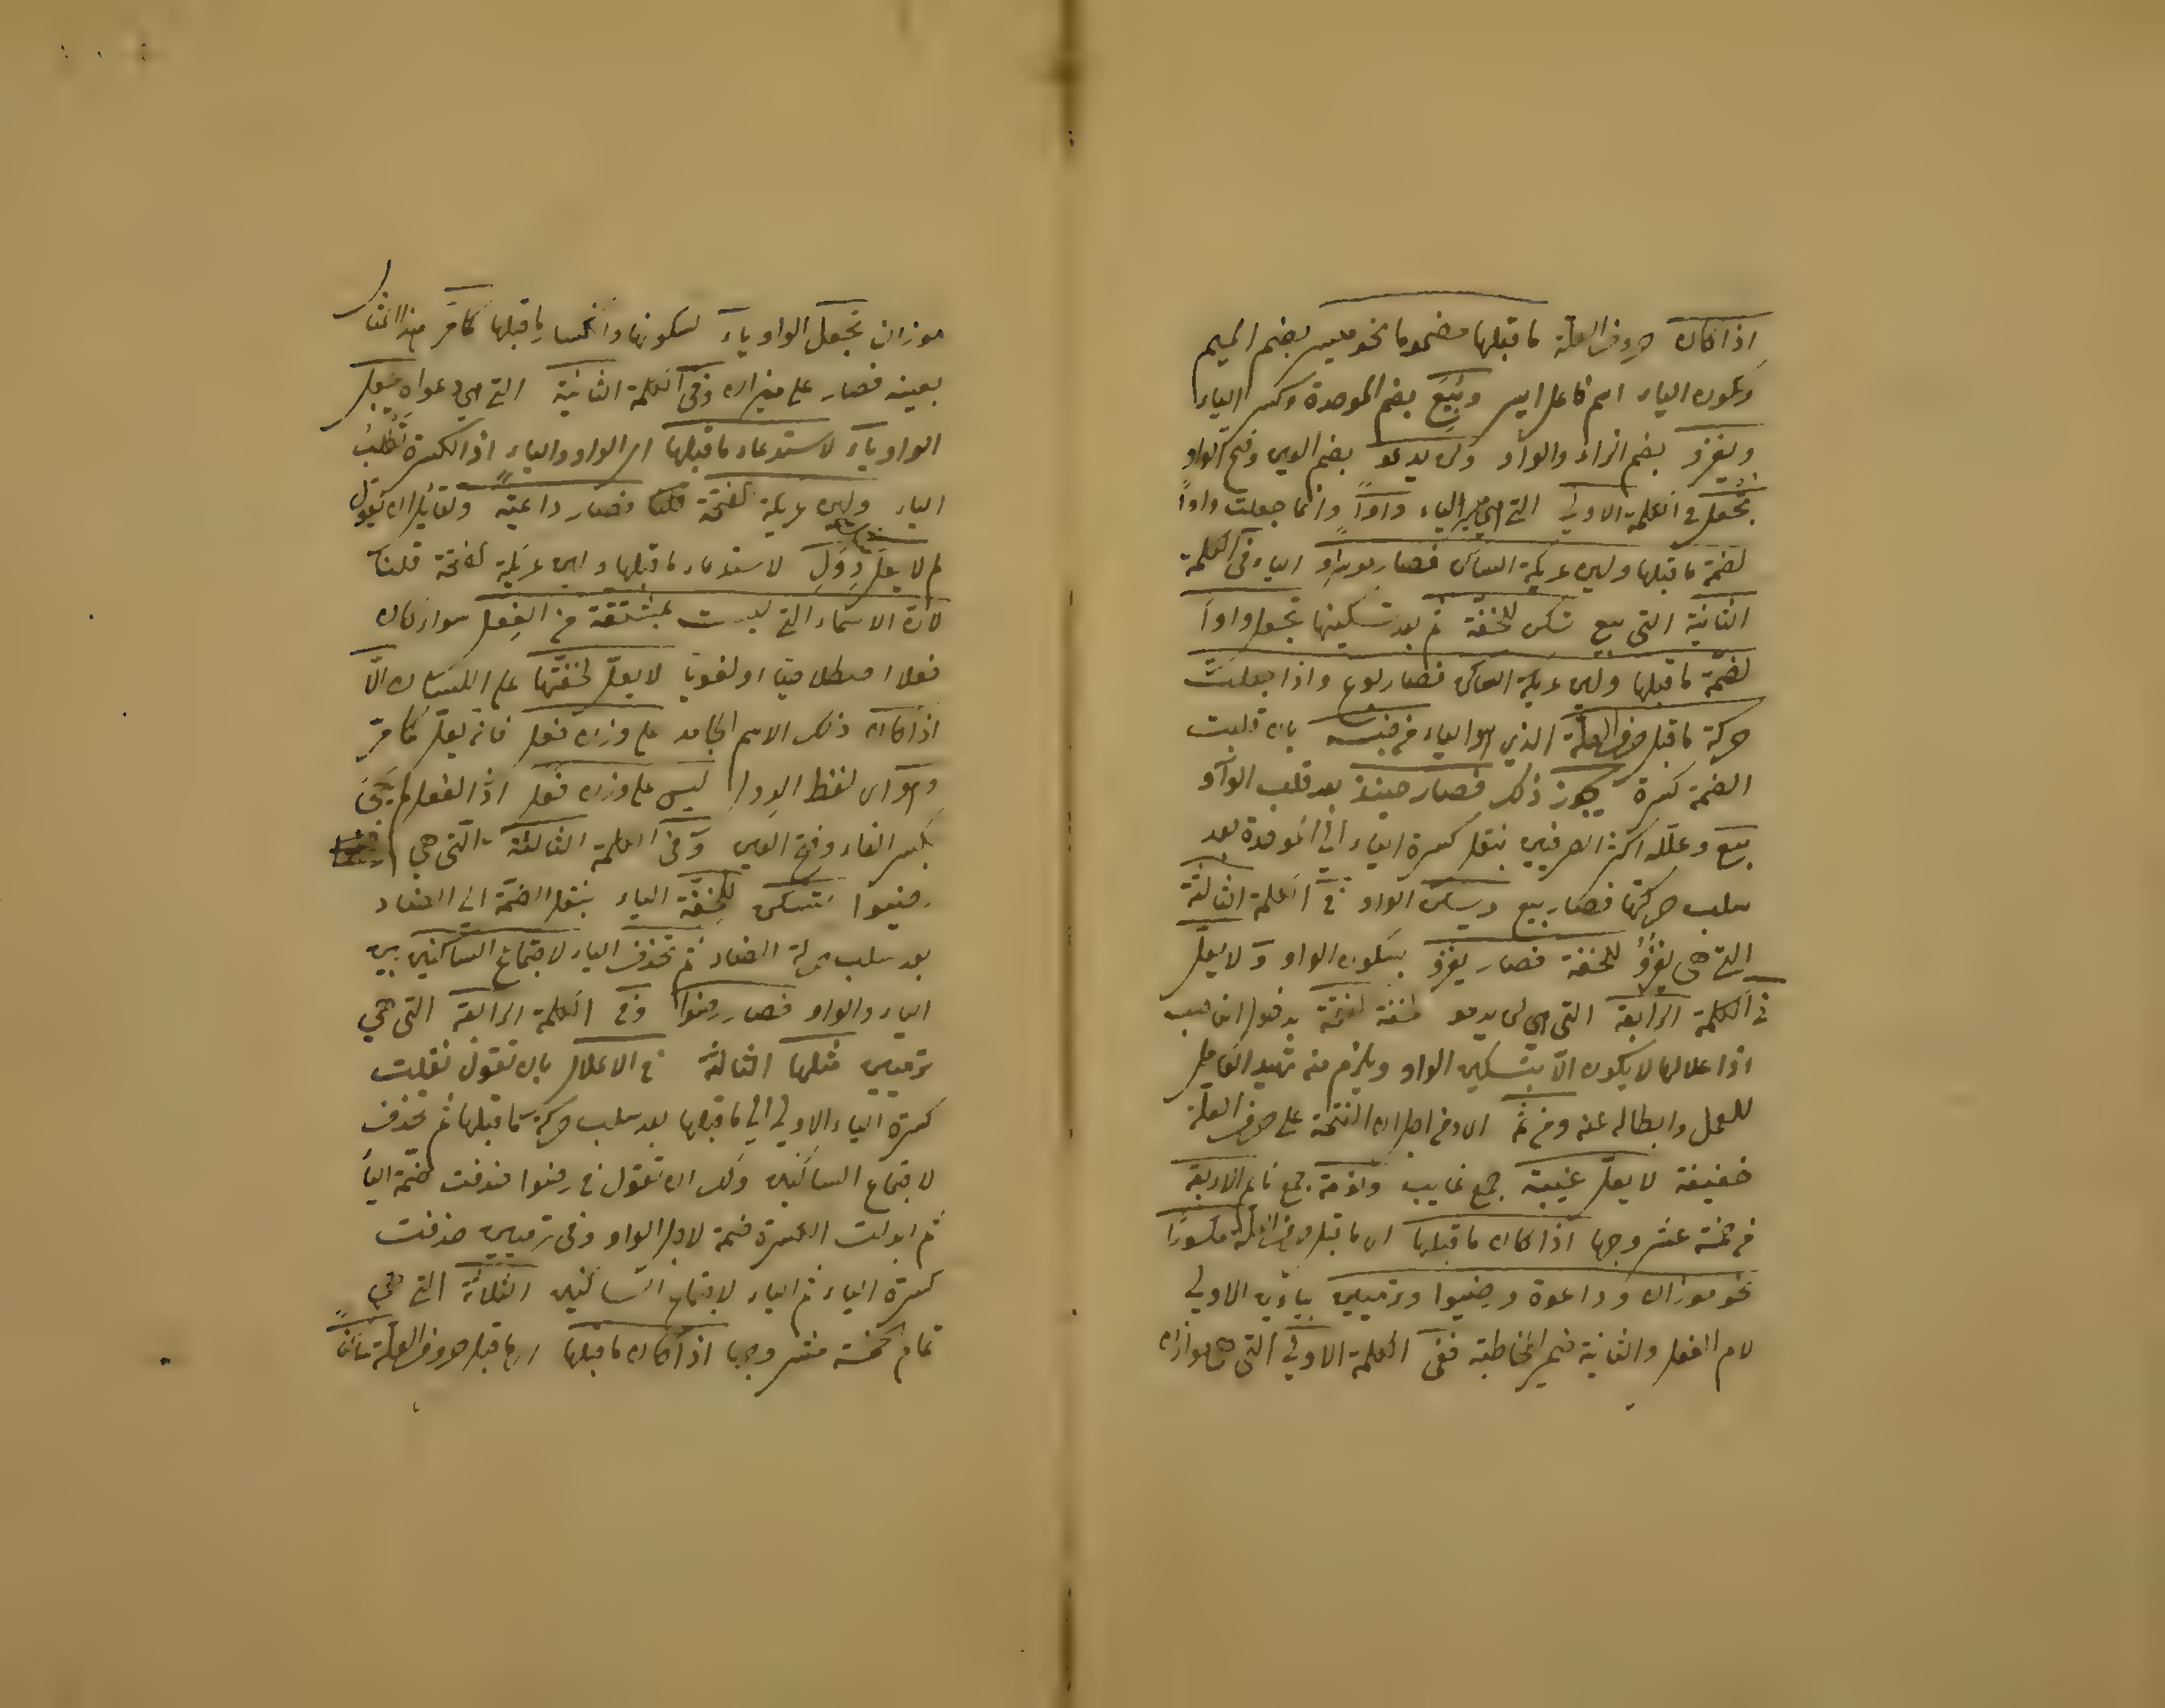 اذا كان حروف العلة ما قبلها مضموما نحو ميسر بضم الميم
وسكون الياء اسم فاعل ايسر وبيع بضم الموحدة وكسر الياء
ويغزو بضم الزاء والواو ولن يدعو بضم العين وفتح الواو
تجعل في الكلمة الاولى التي هي ميسر الياء واوا وانما جعلت واوا
لضمة ما قبلها ولين عريكة الساكن فصار موسر او الياء في الكلمة
الثانية التي بيع تسكن للخفة ثم بعد تسكينها تجعل واوا
لضمة ما قبلها ولين عريكة الساكن فصار بوع واذا جعلت
حركة ما قبل حرف العلة الذي هو الياء من جنسه بان قلبت
الضمة كسرة يجوز ذلك فصار حينئذ بعد قلب الواو
بيع وعلله اكثر الصرفيين بنقل كسرة الياء الى الموحدة بعد
سلب حركتها فصار بيع ويسكن الواو في الكلمة الثالثة
التي هي يغزو للخفة فصار يغزو بسكون الواو ولا يعل
في الكلمة الرابعة التي هي لن يدعو لخفة الفتحة بدخول الناصب
اذ اعلالها لا يكون الا بتسكين الواو ويلزم منه تهييد العامل
للعمل وابطاله عنه ومن ثم اي ومن اجل ان الفتحة على حرف العلة
خفيفة لا يعل غيبة جمع غايب ونومة جمع نايم الاربعة
من خمسة عشر وجها اذا كان ما قبلها اي ما قبل حروف العلة مكسورا
نحو موزان وداعوة ورضيوا وترميين بياءين الاولى
لام الفعل والثانية ضمير المخاطبة ففي الكلمة الاولى التي هي موازن
موزان تجعل الواو ياء لسكونها وانكسار ما قبلها كما مر هذا المثال
بعينه فصار على ميزان وفي الكلمة الثانية التي هي داعوة يجعل
الواو ياء لاستدعاء ما قبلها اي الواو والياء اذ الكسرة تطلب
الياء ولين عريكة الفتحة فصار داعية ولقايل ان يقول
لم لا يعل دول لاستدعاء ما قبلها ولين عريكة الفتحة قلنا
لان الاسماء التي ليست بمشتقة من الفعل سواء كان
فعلا اصطلاحيا او لغويا لا يعل لخفتها على اللسان الا
اذا كان ذلك الاسم الجامد على وزن فعل فانه يعل كما مر
وهو اي لفظ الدول ليس على وزن فعل اذ الفعل لم يجئ
بكسر الفاء وفتح العين وفي الكلمة الثالثة التي هي
رضيوا تسكن للخفة الياء بنقل الضمة الى الضاد
بعد سلب حركة الضاد ثم تحذف الياء لاجتماع الساكنين بين
الياء والواو فصار رضوا وفي الكلمة الرابعة التي هي
ترميين مثلها الثالثة في الاعلال بان تقول نقلت
كسرة الياء الاولى الى ما قبلها بعد سلب حركة ما قبلها ثم تحذف
لاجتماع الساكنين ولك ان تقول في رضوا حذفت ضمة الياء
ثم ابدلت الكسرة ضمة لاجل الواو وفي ترميين حذفت
كسرة الياء ثم الياء لاجتماع الساكنين الثلاثة التي هي
تمام الخمسة عشر وجها اذا كان ما قبلها اي ما قبل حروف العلة ساكنا